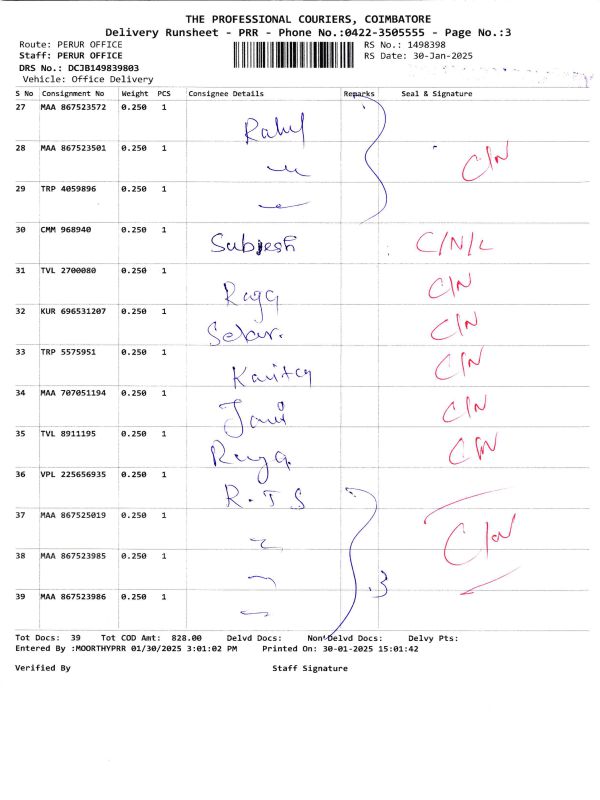 THE PROFESSIONAL COURIERS, COIMBATORE
Delivery Runsheet - PRR - Phone No.:0422-3505555 - Page No.:3
Route: PERUR OFFICE RS No.: 1498398
Staff: PERUR OFFICE RS Date: 30-Jan-2025
DRS No.: DCJB149839803
Vehicle: Office Delivery
S No Consignment No Weight PCS Consignee Details Remarks Seal & Signature
27 MAA 867523572 0.250 1
Rahul
28 MAA 867523501 0.250 1
C/N
29 TRP 4059896 0.250 1
30 CMM 968940 0.250 1
Subjesh C/N/L
31 TVL 2700080 0.250 1
C/N
32 KUR 696531207 0.250 1
C/N
33 TRP 5575951 0.250 1
C/N
34 MAA 707051194 0.250 1
C/N
35 TVL 8911195 0.250 1
C/N
36 VPL 225656935 0.250 1
R.TS
37 MAA 867525019 0.250 1
C/N
38 MAA 867523985 0.250 1
3
39 MAA 867523986 0.250 1
Tot Docs: 39 Tot COD Amt: 828.00 Delvd Docs: Non Delvd Docs: Delvy Pts:
Entered By :MOORTHYPRR 01/30/2025 3:01:02 PM Printed On: 30-01-2025 15:01:42
Verified By Staff Signature